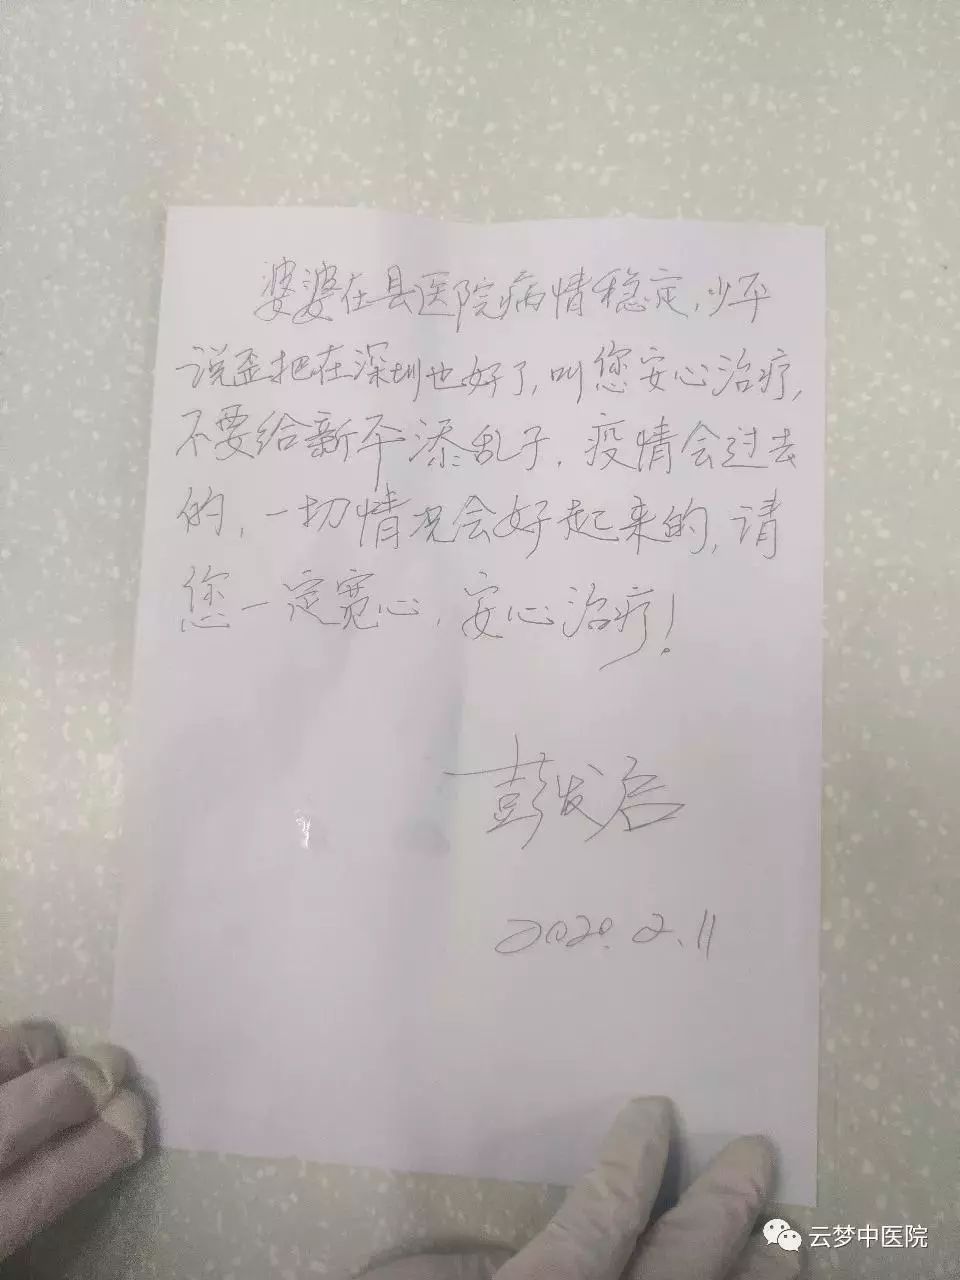 婆婆在县医院病情稳定,少平
说歪把在深圳也好了,叫您安心治疗,
不要给新平添乱子,疫情会过去
的,一切情况会好起来的,请
您一定宽心,安心治疗!
彭发启
2020.2.11
云梦中医院